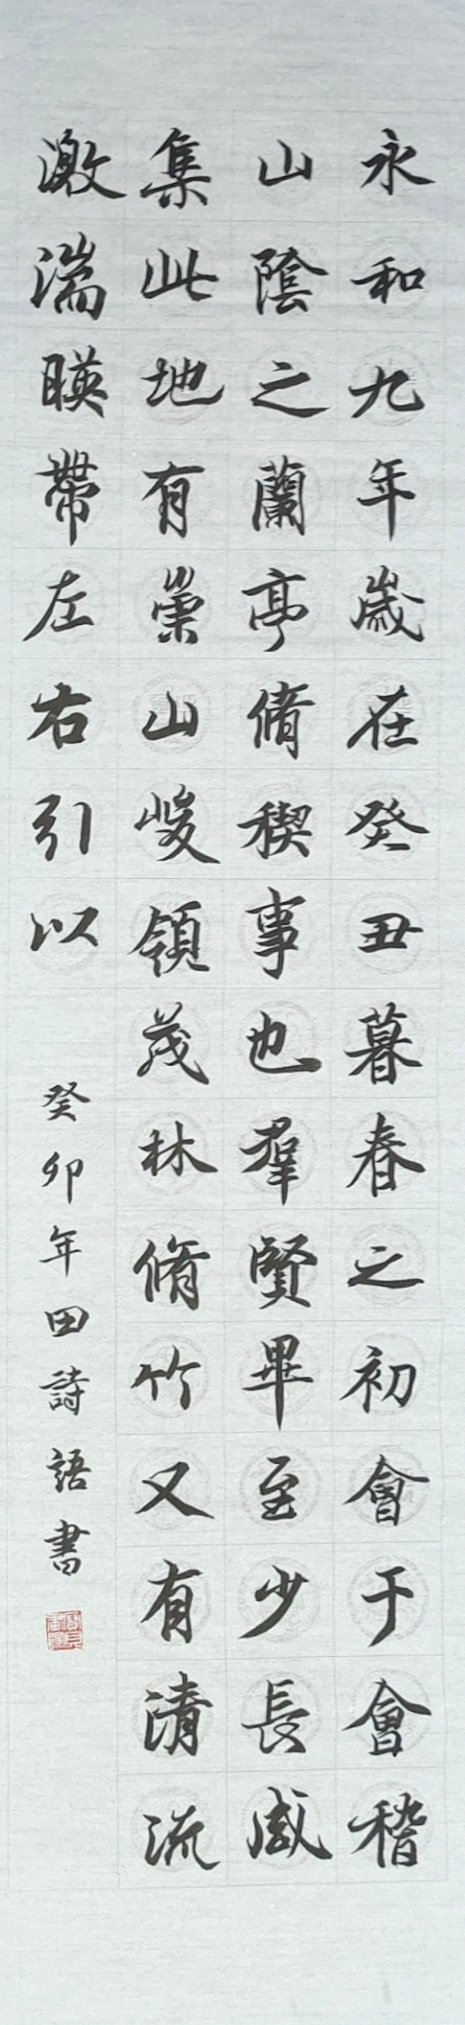 永和九年歲在癸丑暮春之初會于會稽
山陰之蘭亭脩稧事也羣賢畢至少長咸
集此地有崇山峻領茂林脩竹又有清流
激湍暎帶左右引以
癸卯年田詩語書